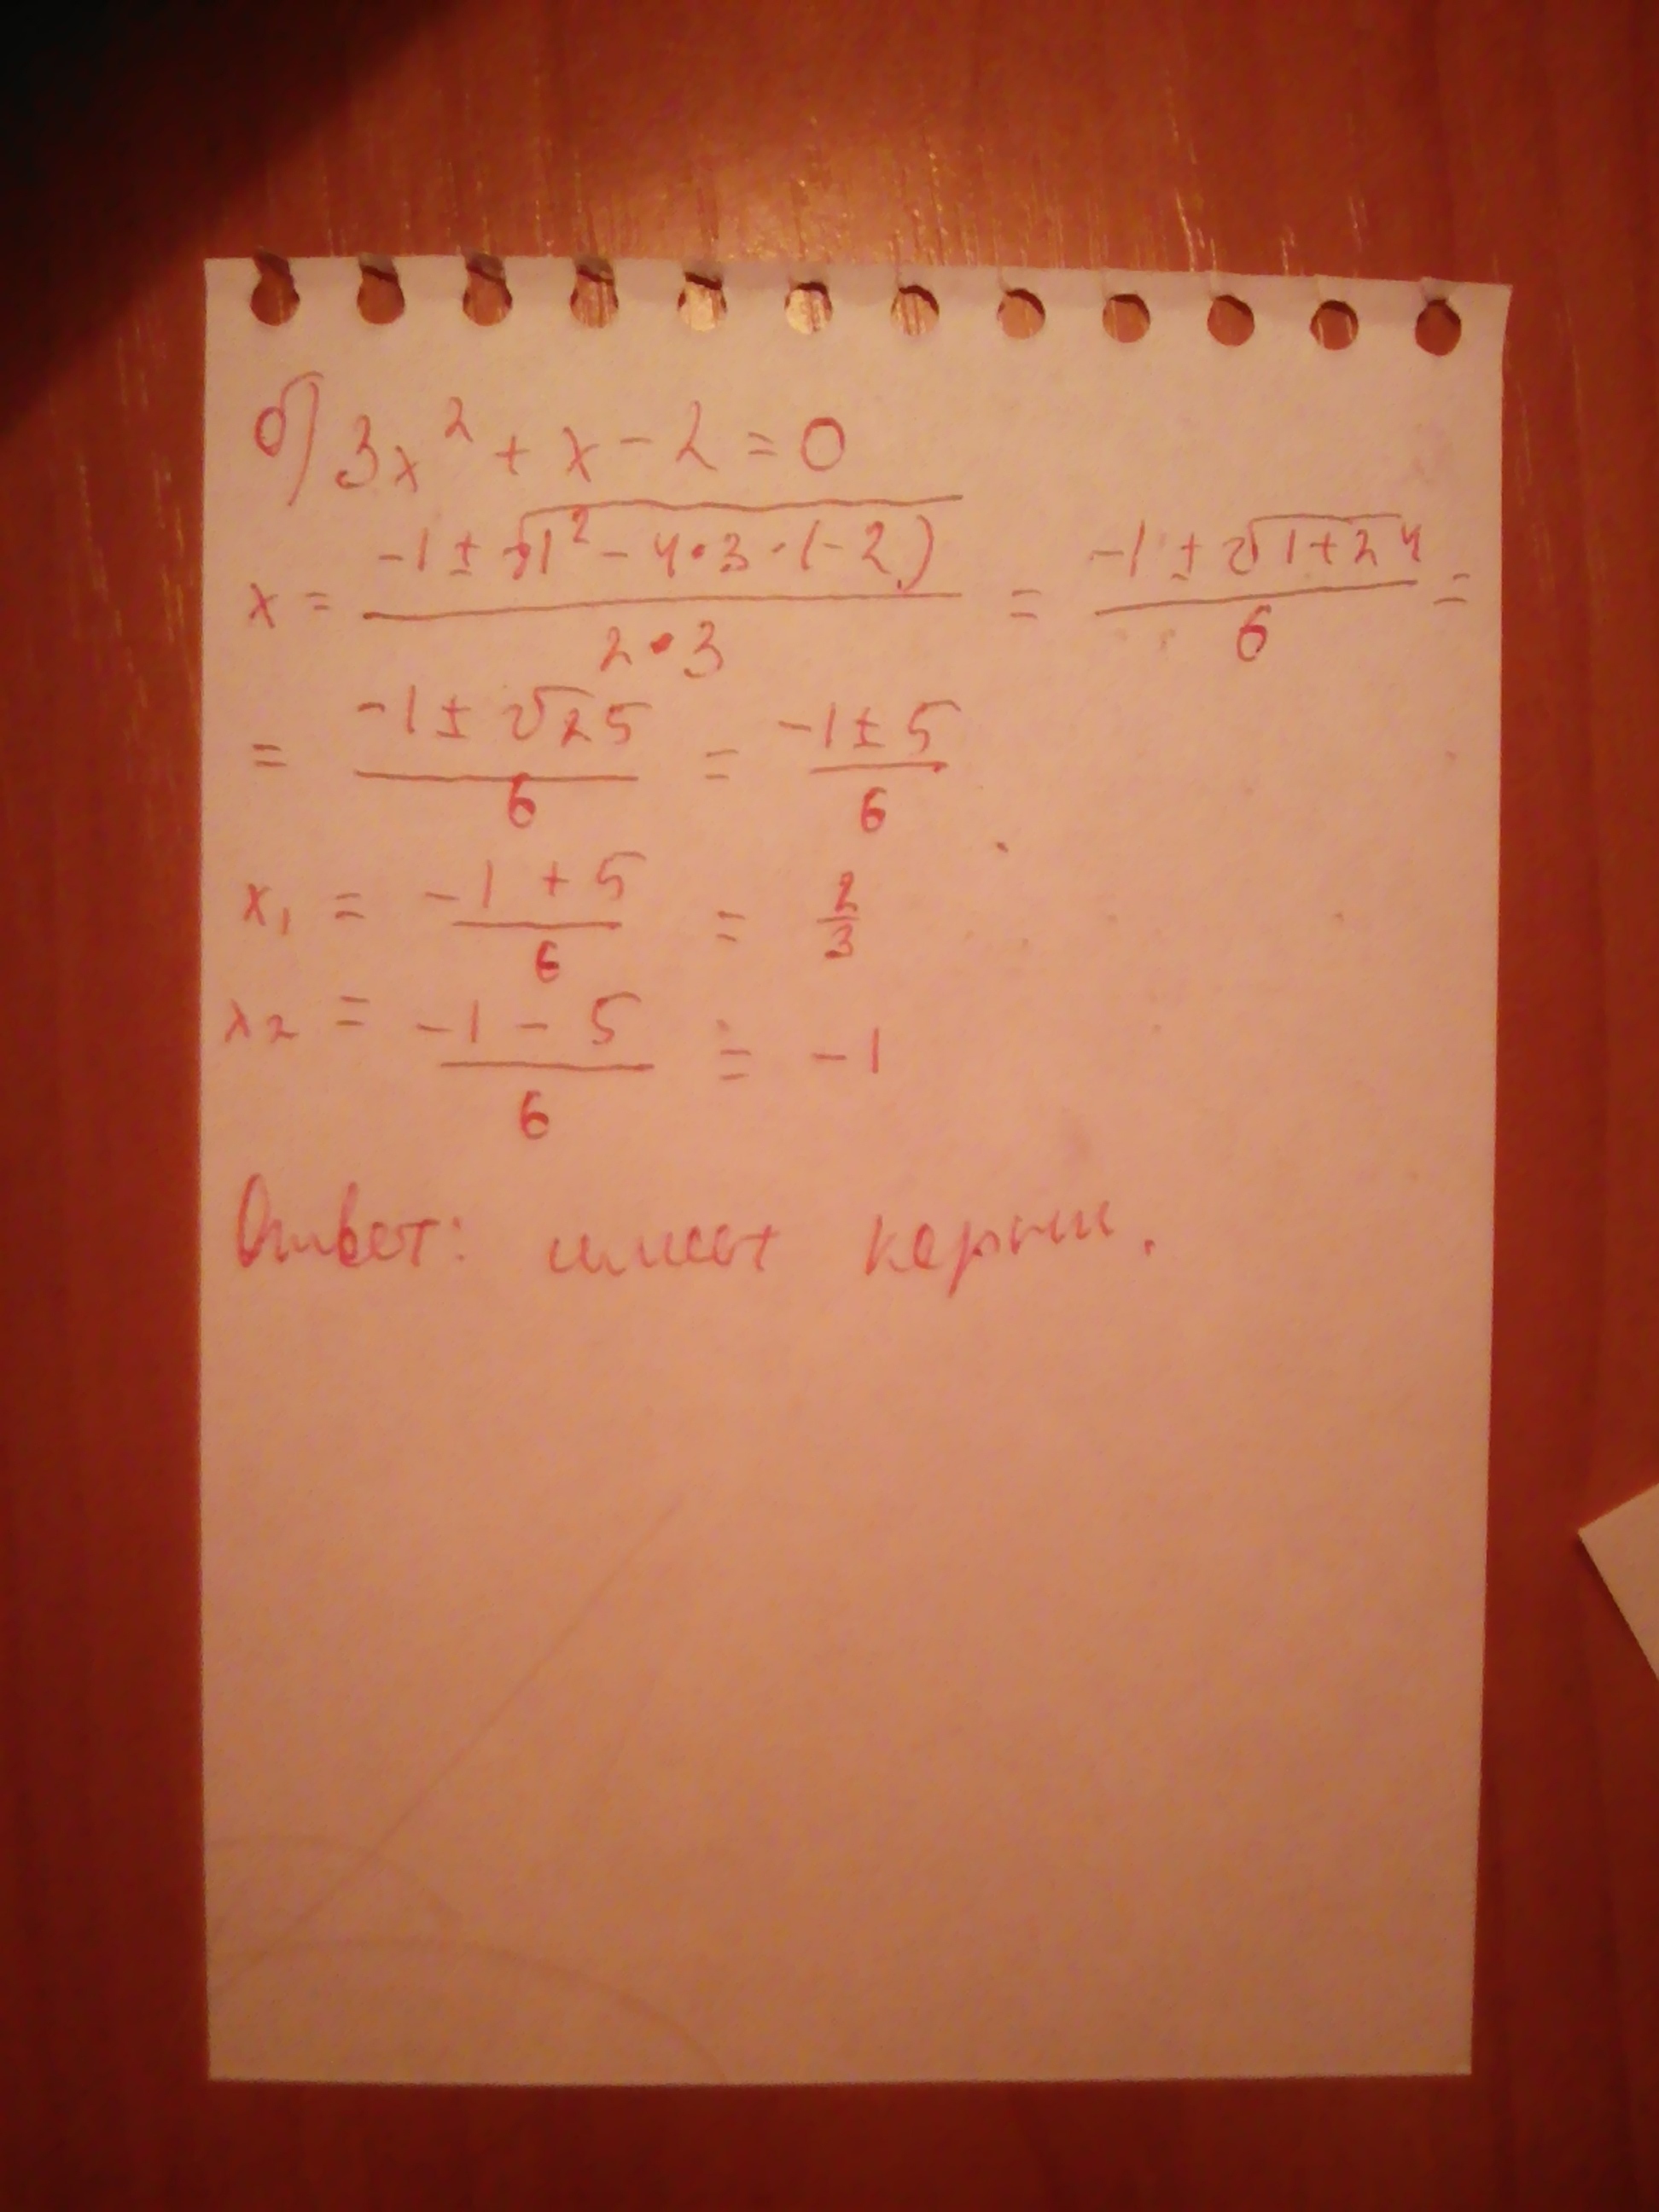 б) 3x² + x - 2 = 0
x = (-1 ± √(1² - 4·3·(-2)))/(2·3) = (-1 ± √(1+24))/6 =
= (-1 ± √25)/6 = (-1 ± 5)/6
x₁ = (-1 + 5)/6 = 2/3
x₂ = (-1 - 5)/6 = -1
Ответ: имеет корни.